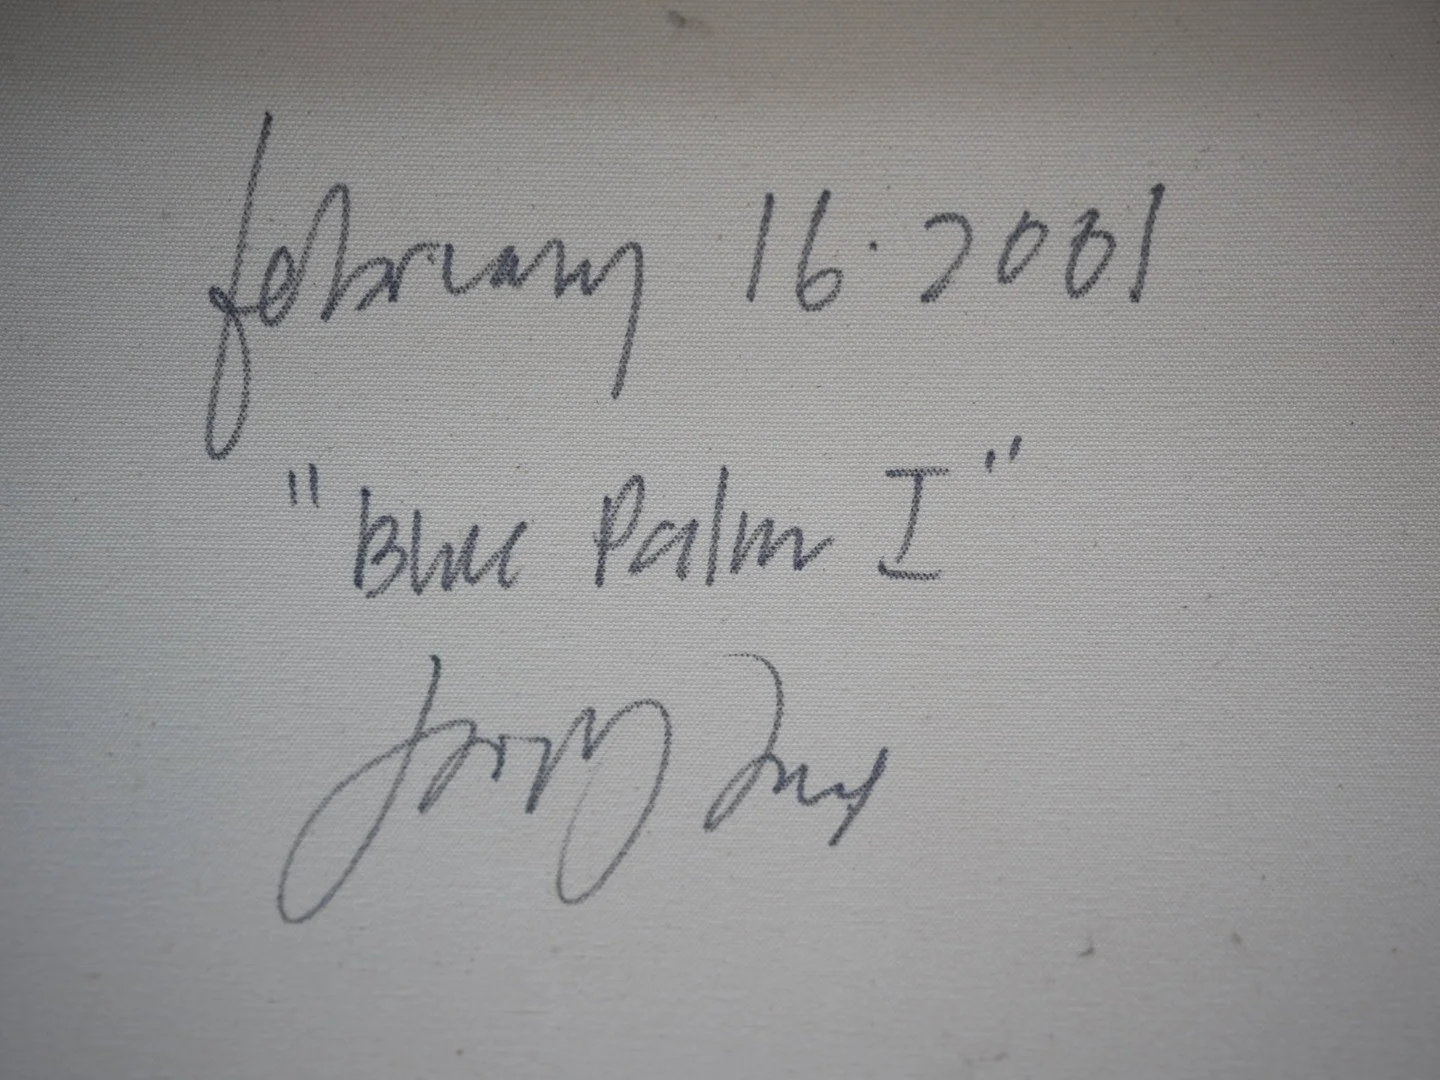 february 16. 2001
"Blue Palm I"